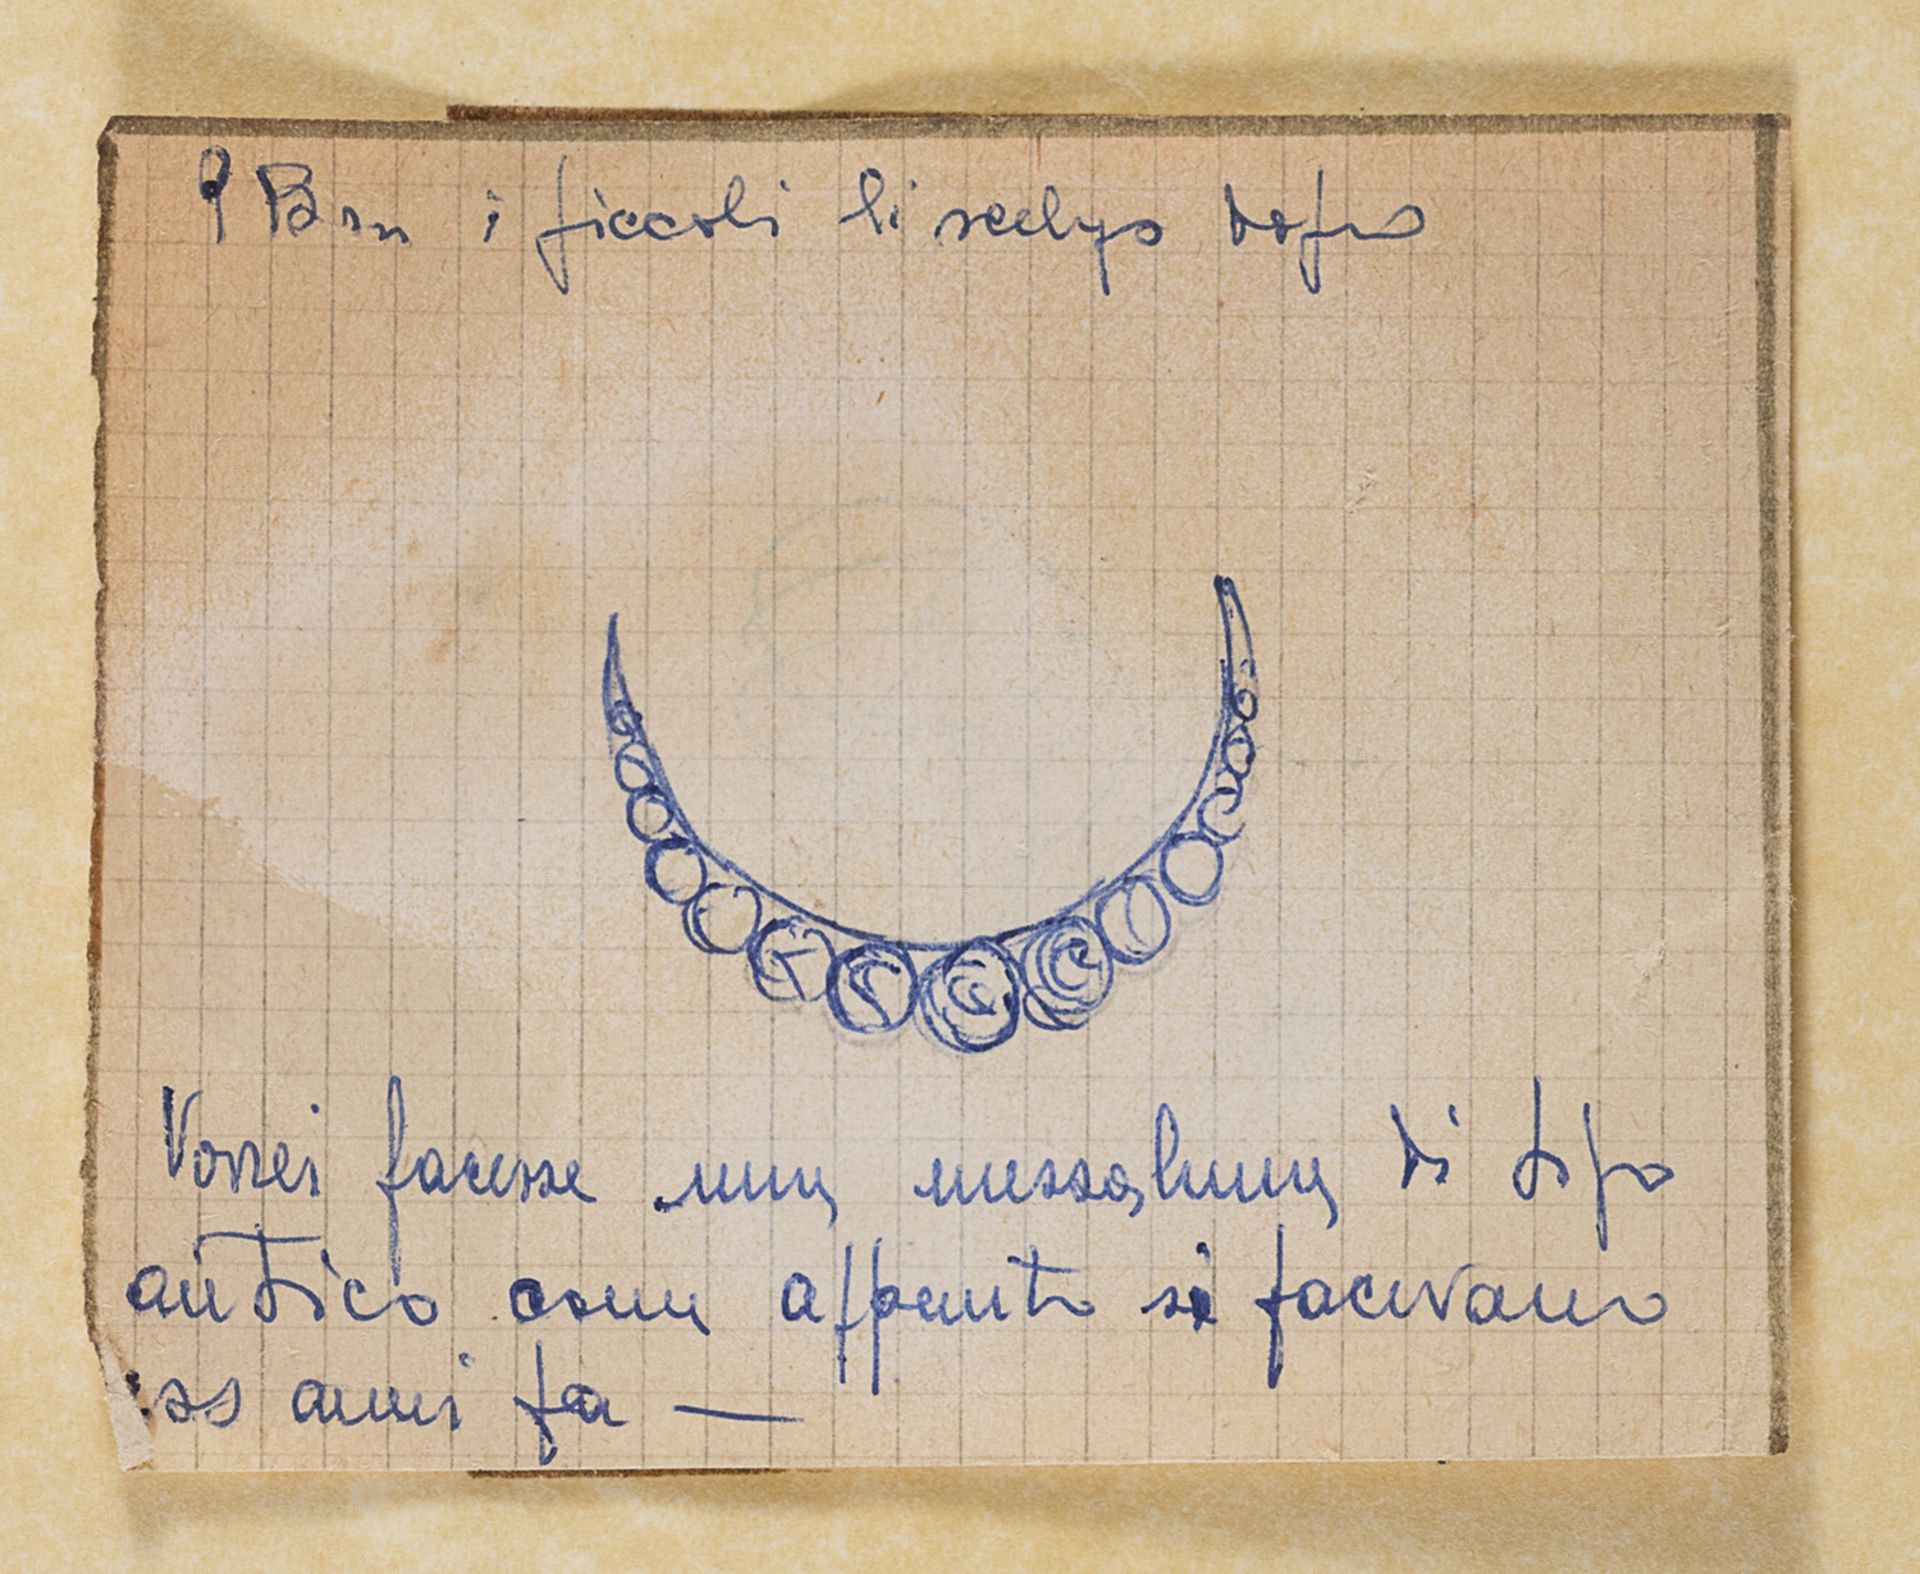 i piccoli li scelgo dopo
Vorrei facesse una mezzaluna di tipo
antico come appunto si facevano
anni fa —